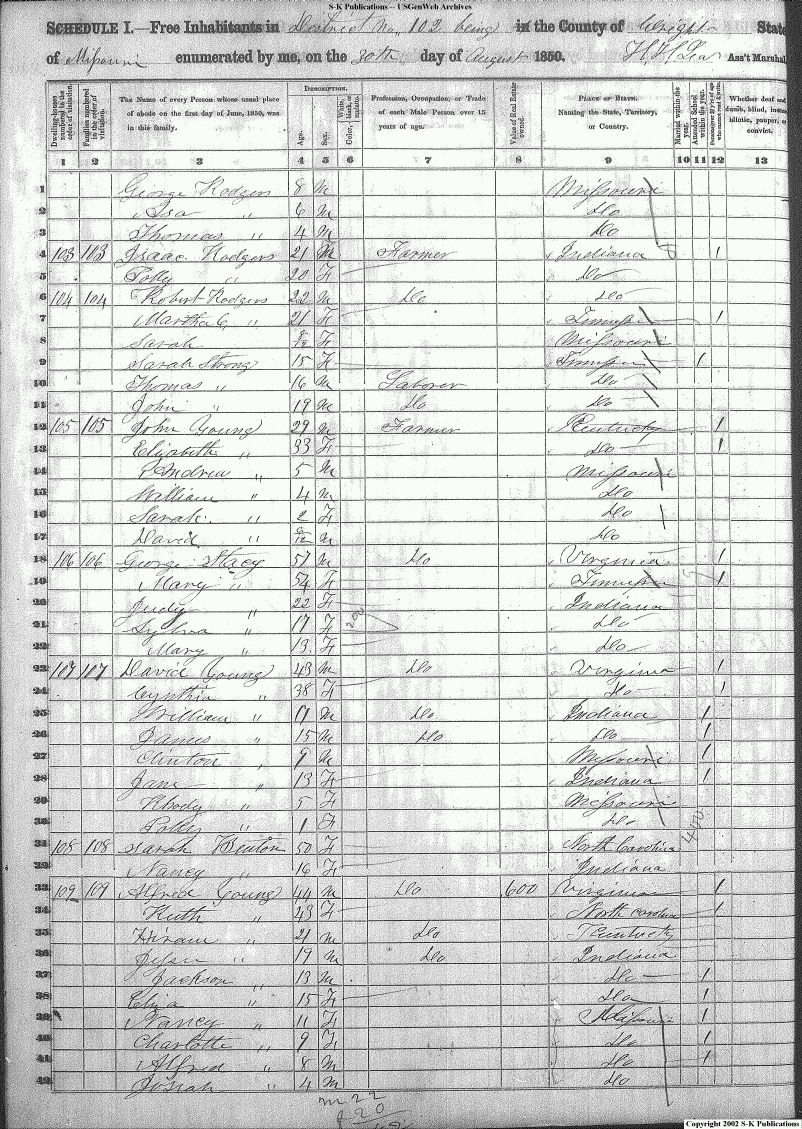 S-K Publications -- USGenWeb Archives
SCHEDULE I.—Free Inhabitants in District No. 102 being in the County of Wright State
of Missouri enumerated by me, on the 30th day of August 1850. Ass't Marshal
Dwelling-houses numbered in the order of visitation.
Families numbered in the order of visitation.
The Name of every Person whose usual place of abode on the first day of June, 1850, was in this family.
DESCRIPTION.
Age.
Sex.
Color, White, black, or mulatto.
Profession, Occupation, or Trade of each Male Person over 15 years of age.
Value of Real Estate owned.
PLACE OF BIRTH. Naming the State, Territory, or Country.
Married within the year.
Attended School within the year.
Whether deaf and dumb, blind, insane, idiotic, pauper, or convict.
1 2 3 4 5 6 7 8 9 10 11 12 13
1 George Rodgers 8 M Missouri
2 Asa " 6 M Do
3 Thomas " 4 M Do
4 103 103 Isaac Rodgers 21 M Farmer Indiana 1
5 Polly " 20 F Do
6 104 104 Robert Rodgers 22 M Do Do
7 Martha C " 21 F Tennessee 1
8 Sarah F Missouri
9 Sarah Strong 15 F Tennessee 1
10 Thomas " 16 M Laborer Do
11 John " 19 M Do Do
12 105 105 John Young 29 M Farmer Kentucky 1
13 Elizabeth " 33 F Do 1
14 Andrew " 5 M Missouri
15 William " 4 M Do
16 Sarah " 2 F Do
17 David " M Do
18 106 106 George Stacy 57 M Do Virginia 1
19 Mary " 54 F Tennessee 1
20 Judy " 22 F Indiana
21 Sylva " 17 F 200 Do
22 Mary " 13 F Do
23 107 107 David Young 43 M Do Virginia 1
24 Cynthia " 38 F Do 1
25 William " 17 M Do Indiana 1
26 James " 15 M Do Do 1
27 Clinton " 9 M Missouri 1
28 Jane " 13 F Indiana 1
29 Rhody " 5 F Missouri
30 Polly " 1 F Do
31 108 108 Sarah Benton 50 F North Carolina 400
32 Nancy " 16 F Indiana
33 109 109 Alfred Young 44 M Do 600 Virginia 1
34 Ruth " 43 F North Carolina 1
35 Hiram " 21 M Do Kentucky
36 " 19 M Do Indiana
37 Jackson " 13 M Do 1
38 Eliza " 15 F Do 1
39 Nancy " 11 F Missouri 1
40 Charlotte " 9 F Do 1
41 Alfred " 8 M Do 1
42 Josiah " 4 M Do
m 22
f 20
Copyright 2002 S-K Publications